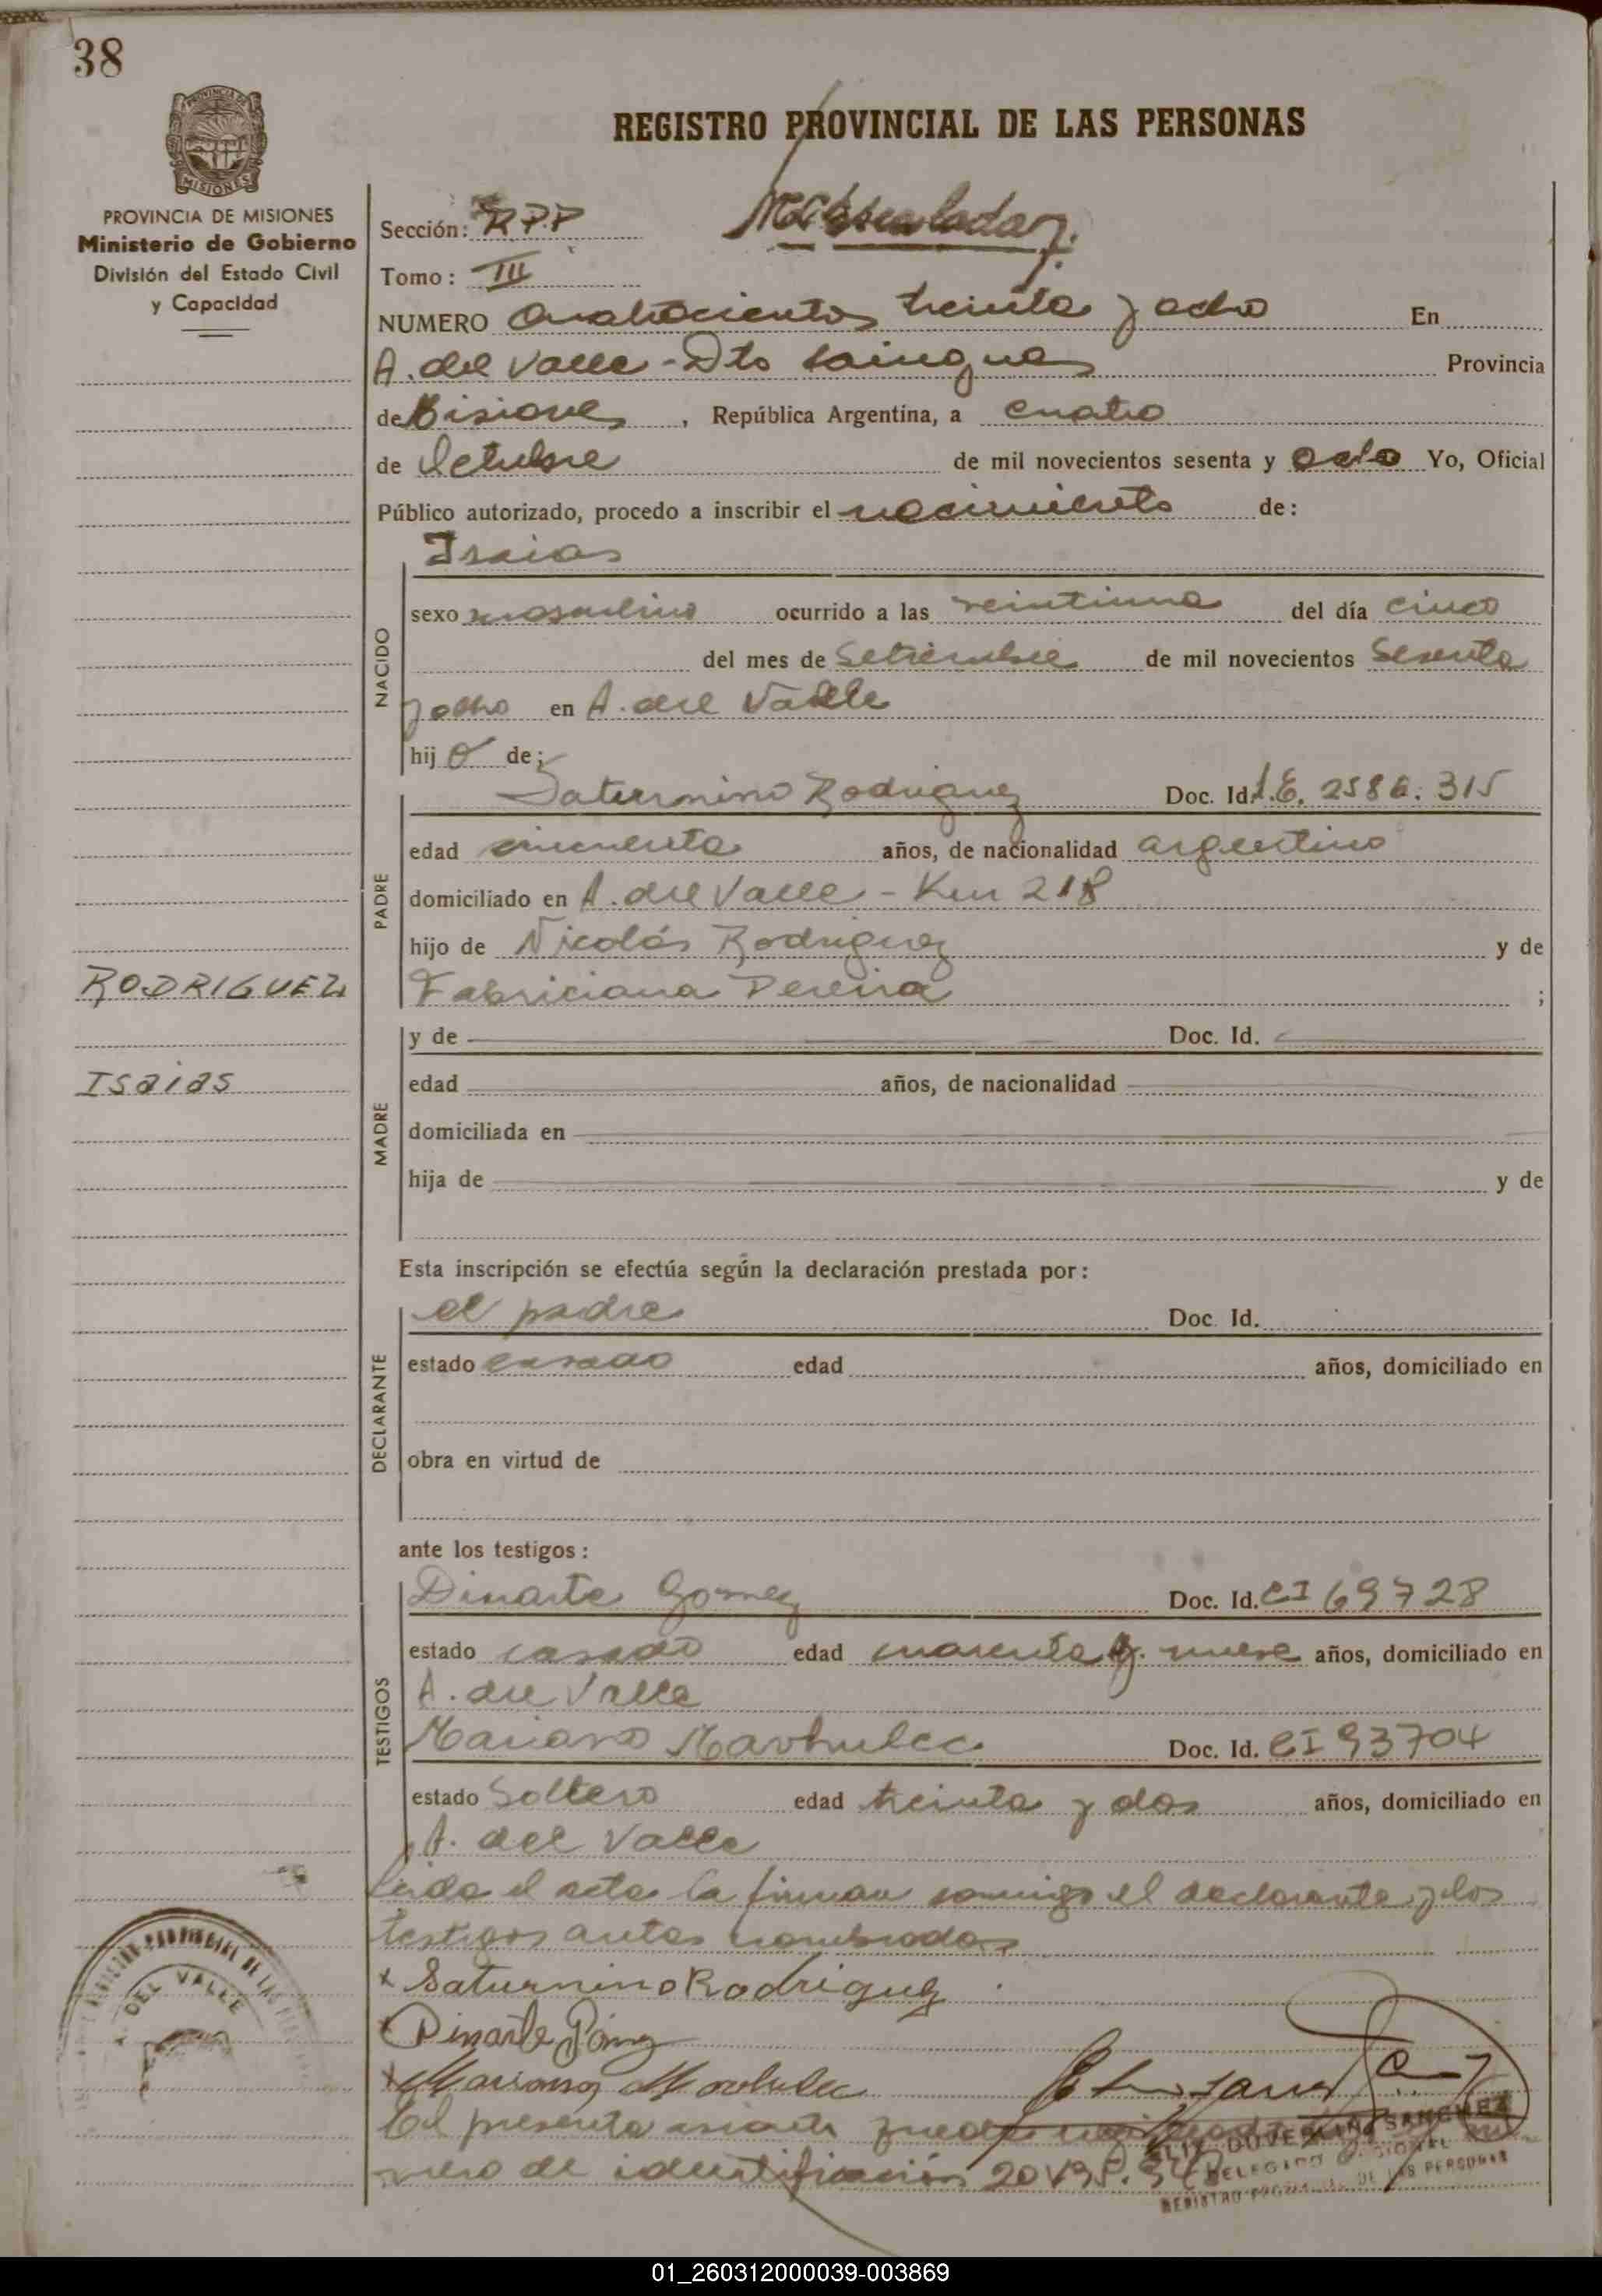 38
PROVINCIA DE
MISIONES
PROVINCIA DE MISIONES
Ministerio de Gobierno
División del Estado Civil
y Capacidad
REGISTRO PROVINCIAL DE LAS PERSONAS
Sección: R.P.P
Tomo: III
NUMERO Cuatrocientos treinta y ocho En
A. del Valle - Dto Cainguas Provincia
de Misiones, República Argentina, a cuatro
de Octubre de mil novecientos sesenta y ocho Yo, Oficial
Público autorizado, procedo a inscribir el nacimiento de:
Isaias
NACIDO
sexo masculino ocurrido a las veintiuna del día cinco
del mes de Setiembre de mil novecientos Sesenta
y ocho en A. del Valle
hijo de;
PADRE
Saturnino Rodriguez Doc. Id. L.E. 2586.315
edad cincuenta años, de nacionalidad argentino
domiciliado en A. del Valle - Km 218
hijo de Nicolás Rodriguez y de
Fabriciana Pereira ;
RODRIGUEZ
Isaias
MADRE
y de Doc. Id.
edad años, de nacionalidad
domiciliada en
hija de y de
Esta inscripción se efectúa según la declaración prestada por:
DECLARANTE
el padre Doc. Id.
estado casado edad años, domiciliado en
obra en virtud de
ante los testigos:
TESTIGOS
Dinarte Gomez Doc. Id. CI 69728
estado casado edad cuarenta y nueve años, domiciliado en
A. del Valle
Mariano Doc. Id. CI 93704
estado Soltero edad treinta y dos años, domiciliado en
A. del Valle
Leida el acta la firman conmigo el declarante y los
testigos antes nombrados
x Saturnino Rodriguez
x Dinarte Gomez
x Mariano
DEL VALLE
El presente
mero de identificación
SANCHEZ
DELEGADO
REGISTRO DE LAS PERSONAS
01_260312000039-003869